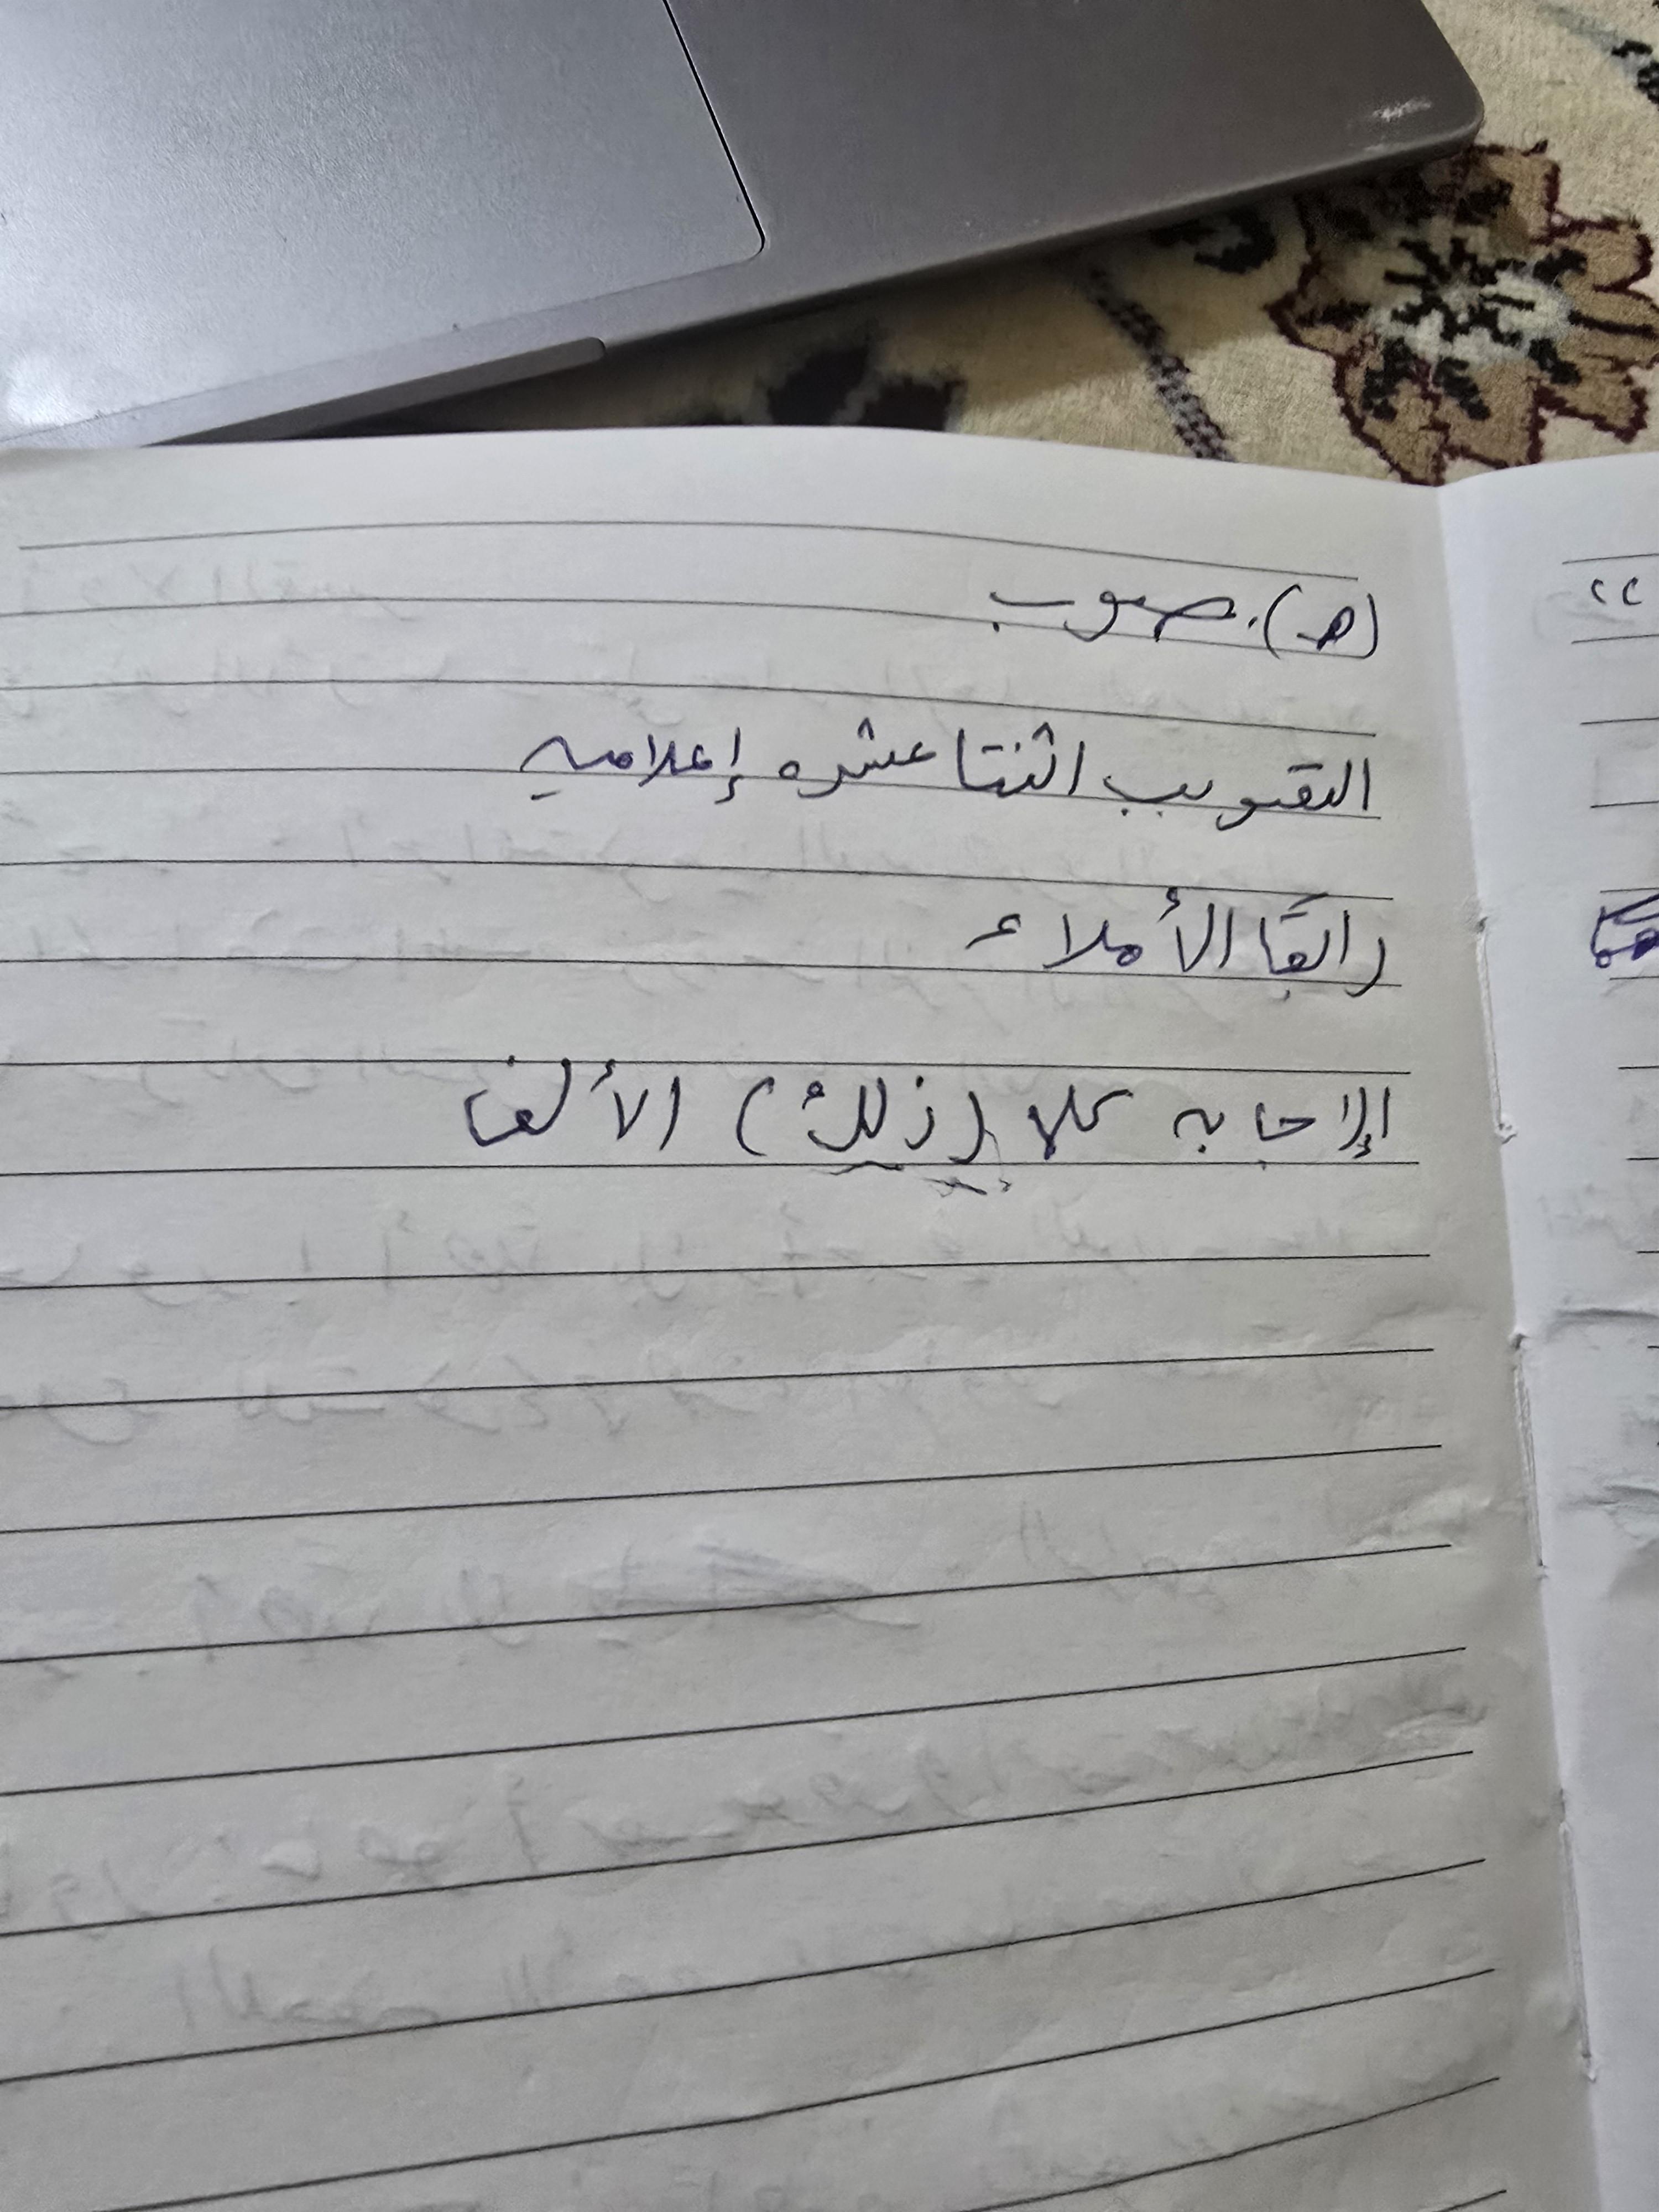 (هـ). صوب
التقويب اثنتا عشره إعلاميه
رابعًا الأملاء
الإجابه كلا (ذلك) الألف
٢٢